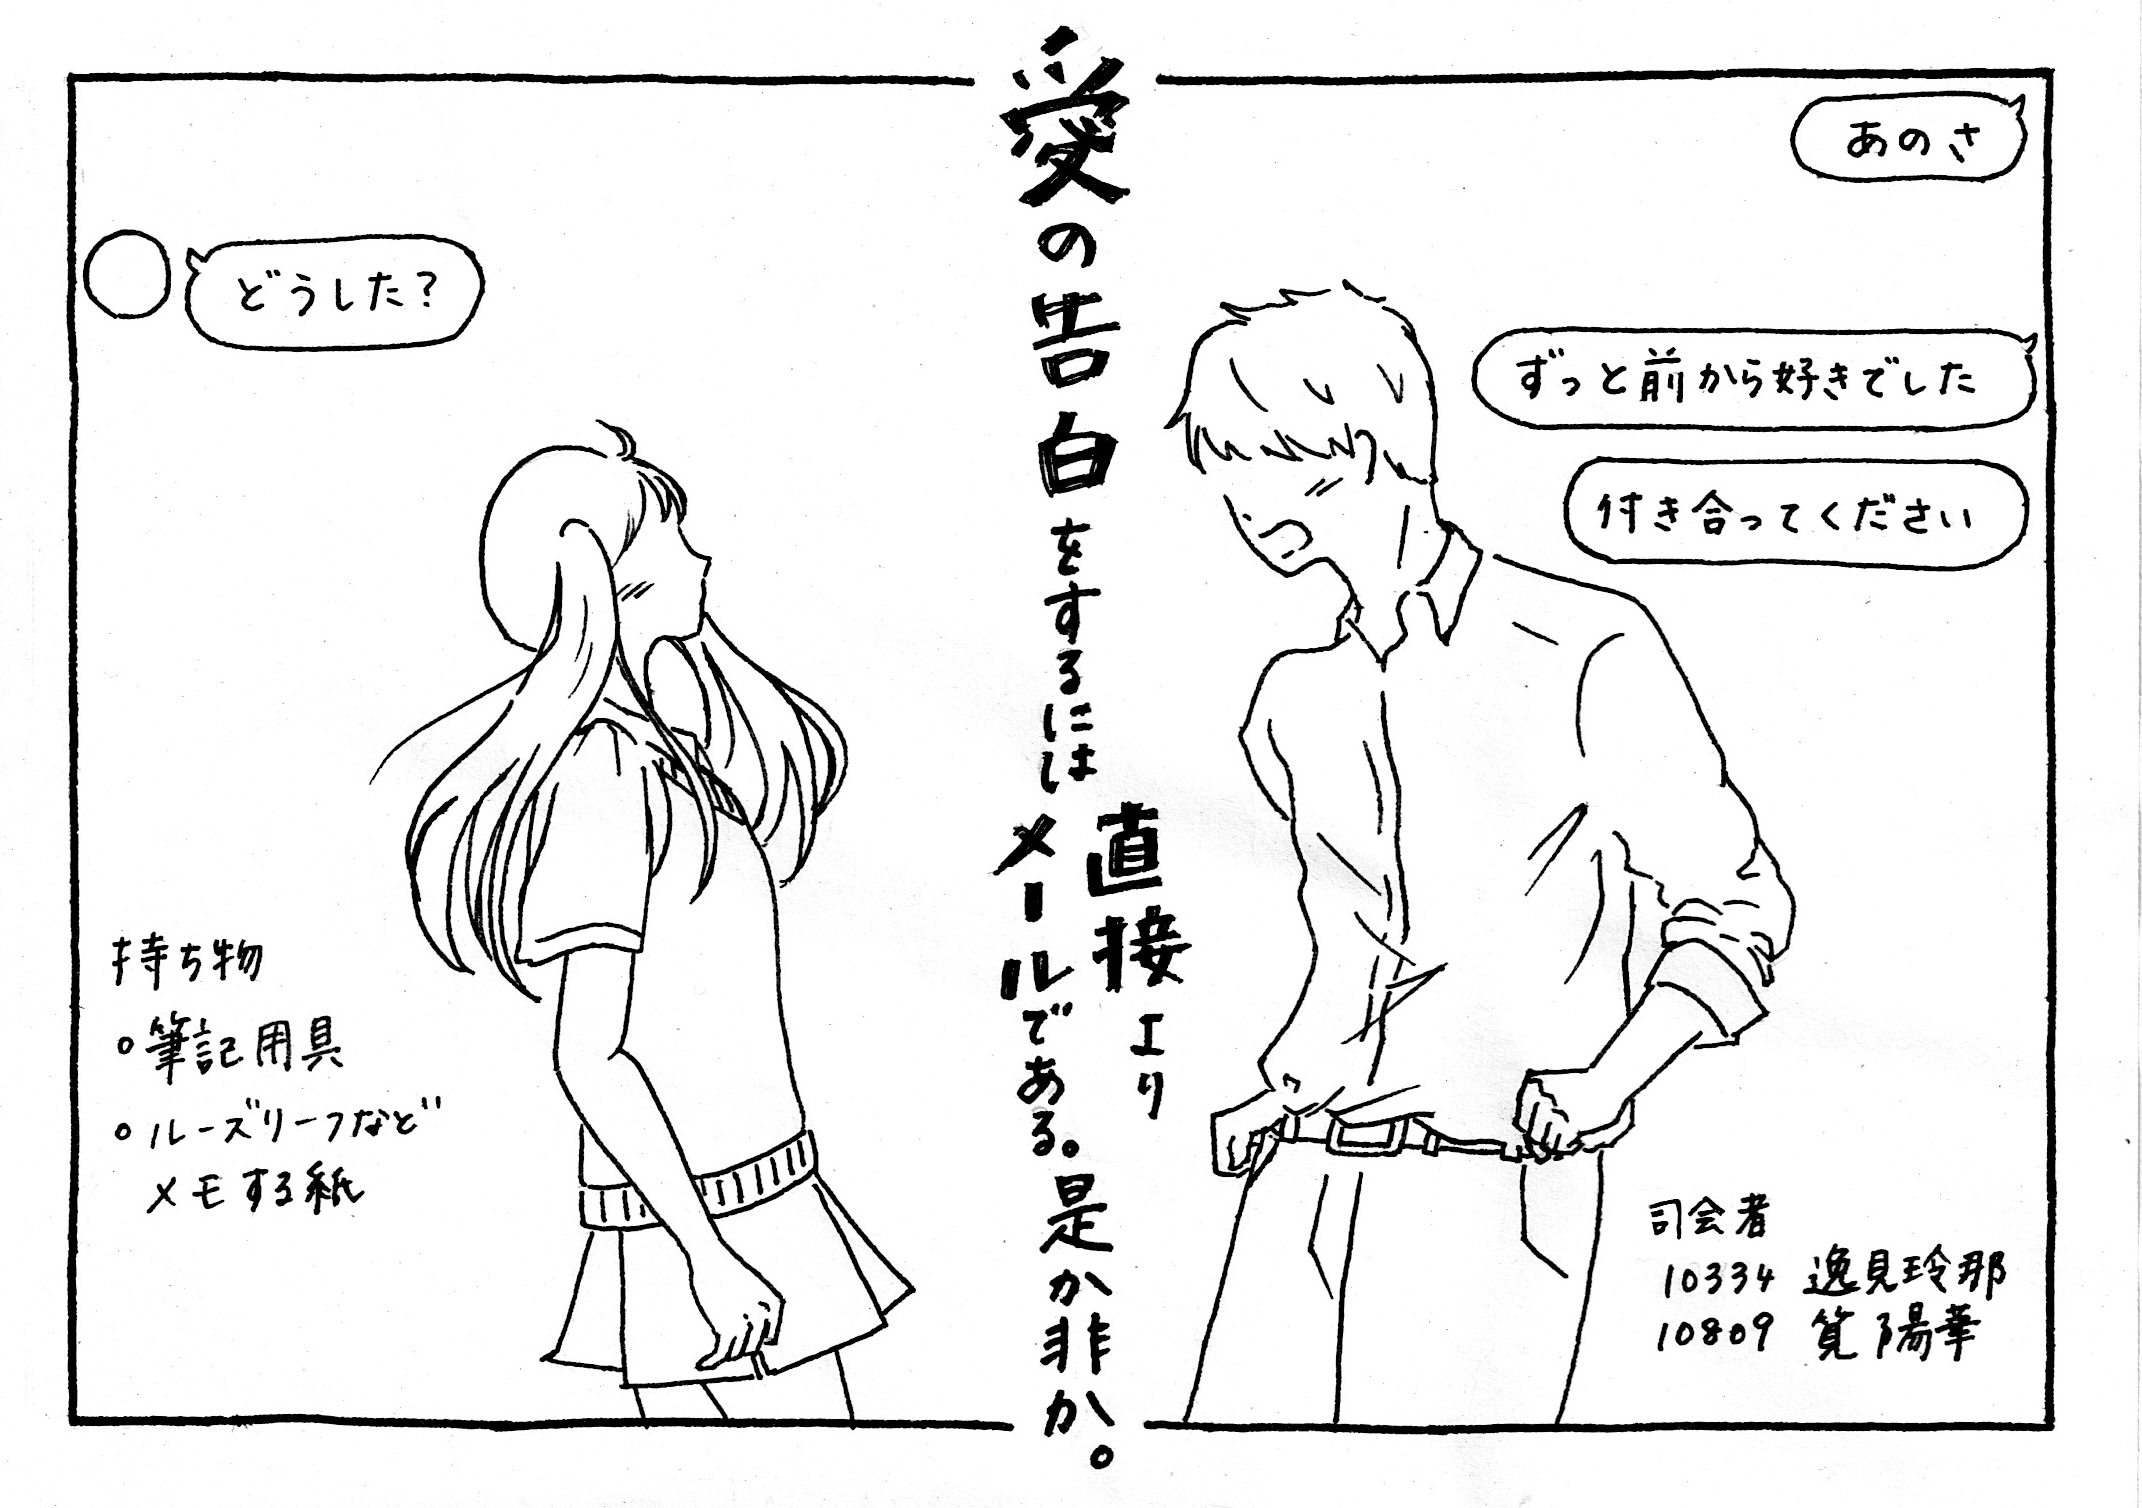 愛の告白をするには
直接より
メールである。
是か非か。
あのさ
どうした？
ずっと前から好きでした
付き合ってください
持ち物
○筆記用具
○ルーズリーフなど
メモする紙
司会者
10334 逸見玲那
10809 筧陽華